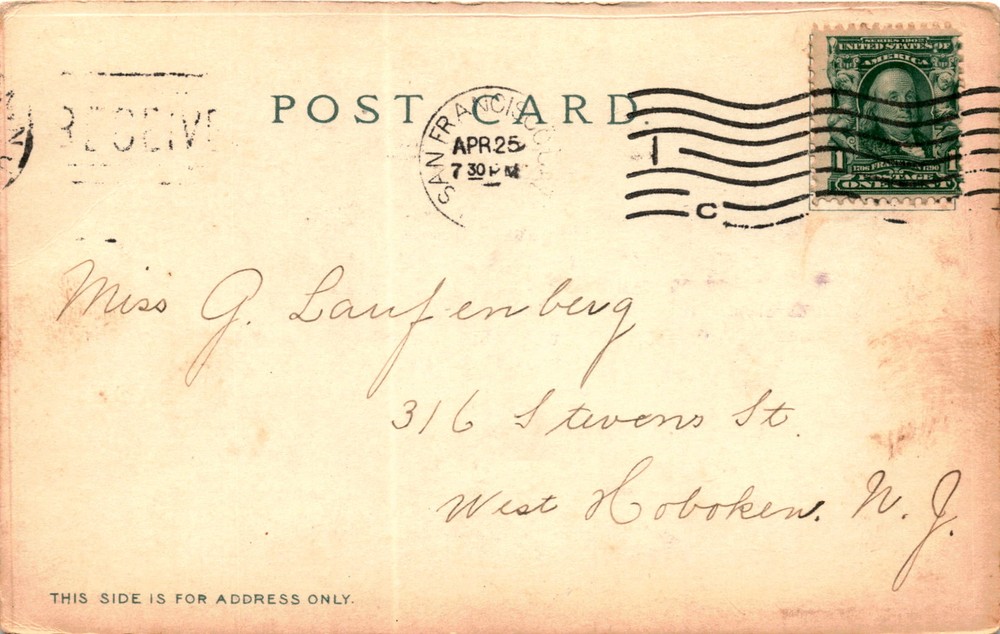 POST CARD.
SAN FRANCISCO
APR 25
7 30 PM
C
SERIES 1902
UNITED STATES OF
AMERICA
1 FRANKLIN 1
1706 1790
POSTAGE
ONE CENT
Miss G. Laufenberg
316 Stevens St.
West Hoboken. N. J.
THIS SIDE IS FOR ADDRESS ONLY.